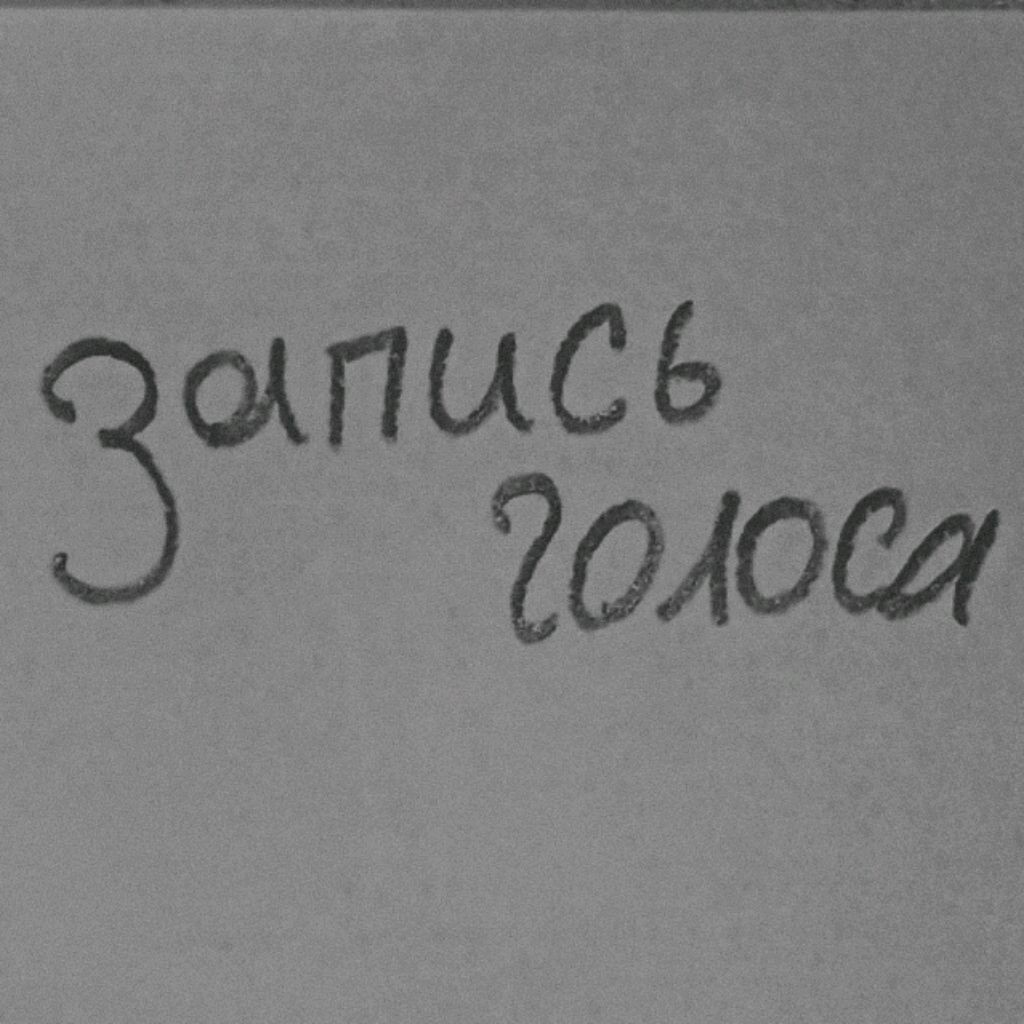 запись
голоса